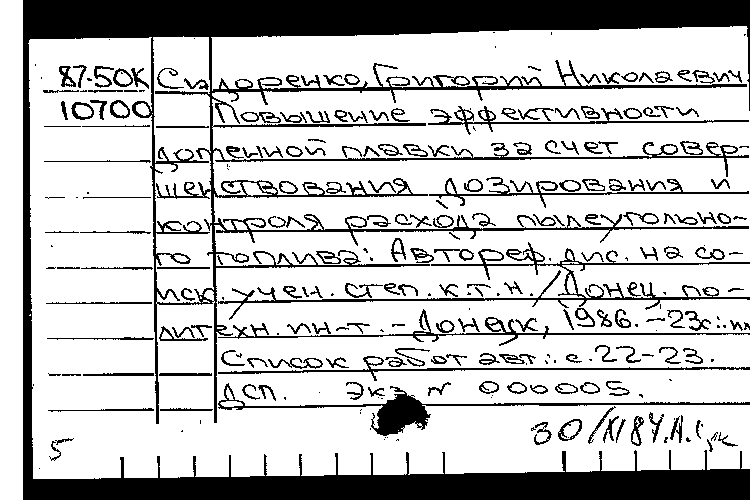 87-50К Сидоренко, Григорий Николаевич
10700 Повышение эффективности
доменной плавки за счет совер-
шенствования дозирования и
контроля расхода пылеугольно-
го топлива: Автореф. дис. на со-
иск. учен. степ. к.т.н. / Донец. по-
литехн. ин-т. - Донецк, 1986. - 23с.: ил
Список работ авт.: с. 22-23.
ДСП. Экз N 000005.
5 30/XI 84